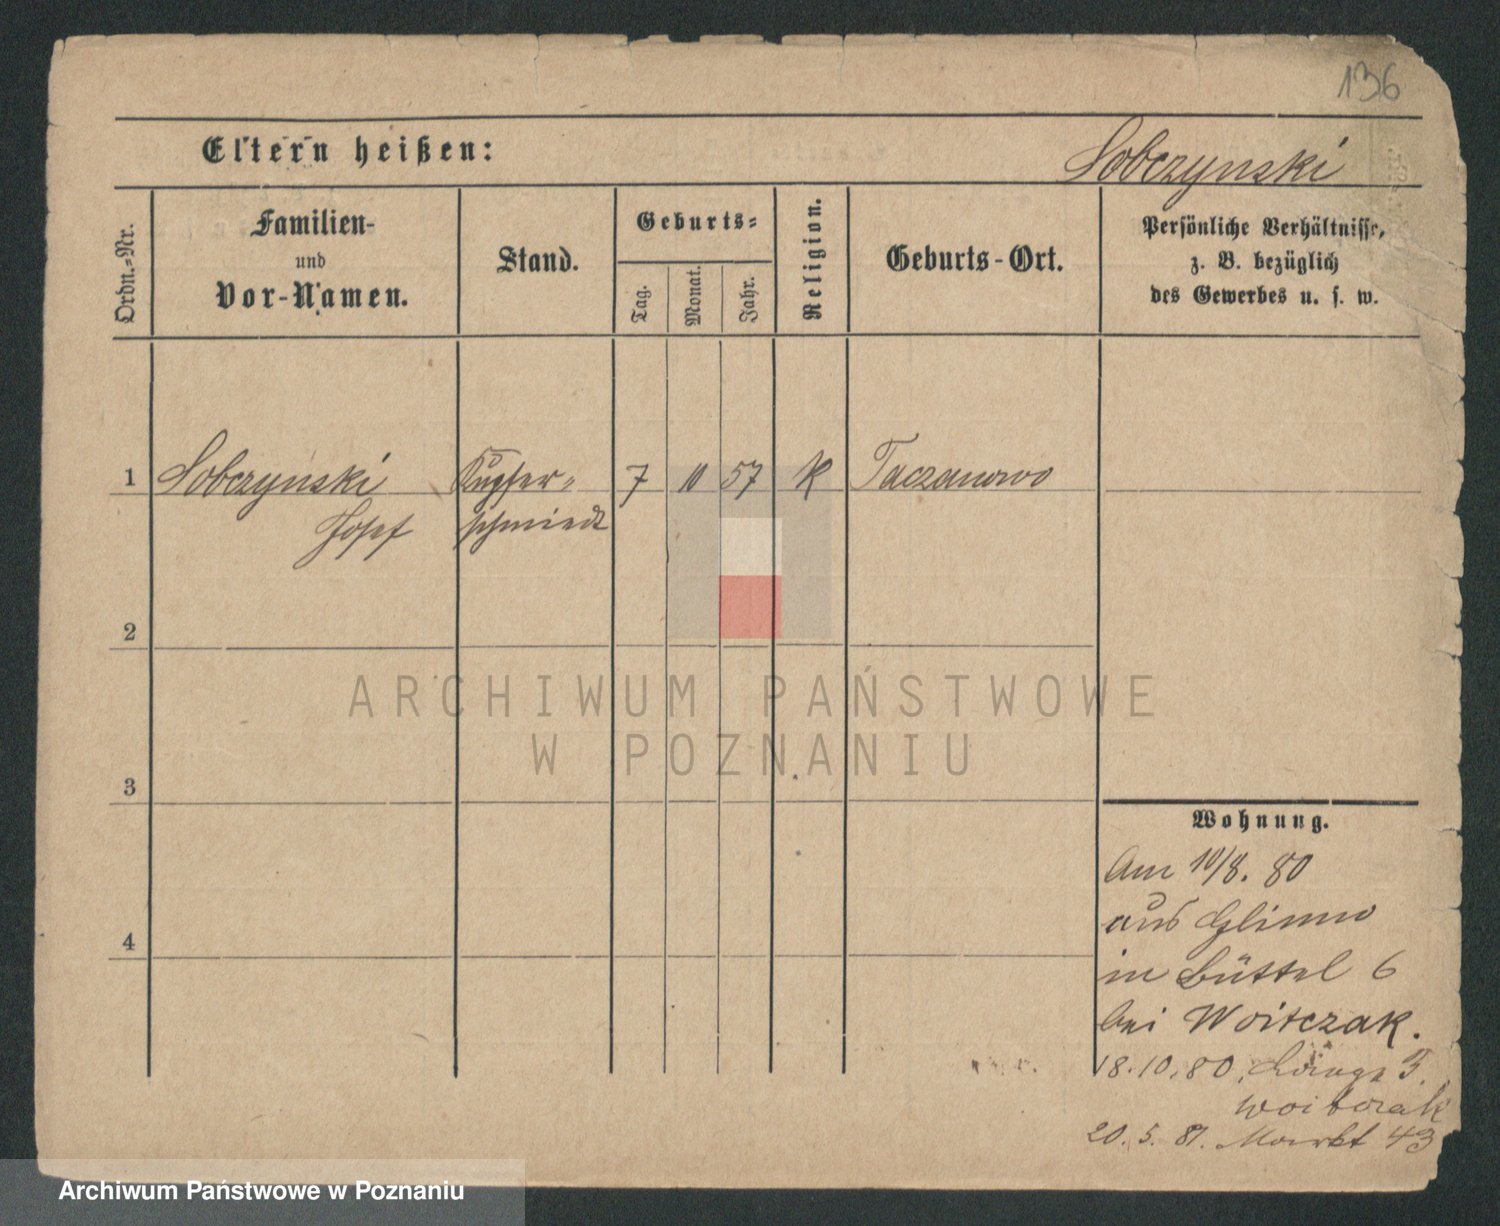 136
Eltern heißen:
Sobczynski
Ordn.-Nr.
Familien-
und
Vor-Namen.
Stand.
Geburts-
Tag.
Monat.
Jahr.
Religion.
Geburts-Ort.
Persönliche Verhältnisse,
z. B. bezüglich
des Gewerbes u. s. w.
1 Sobczynski Kupfer- 7 10 57 K Taczanowo
Josef schmiedt
2
ARCHIWUM PAŃSTWOWE
W POZNANIU
3
Wohnung.
Am 10/8. 80
aus Glinno
4
in Büttel 6
bei Woitczak.
18.10.80. Lange 3.
Woitczak
20. 5. 81. Markt 43
Archiwum Państwowe w Poznaniu